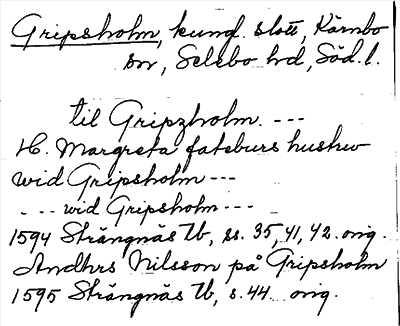 Gripsholm, kungl. slott, Kärnbo
sn, Selebo hd, Söd. l.
til Gripzholm. ---
H. Margreta fatsburs hushw
wid Gripsholm ---
--- wid Gripsholm ---
1594 Strängnäs Tb, ss. 35, 41, 42. orig.
Andhrs Nilsson på Gripsholm
1595 Strängnäs Tb, s. 44. orig.